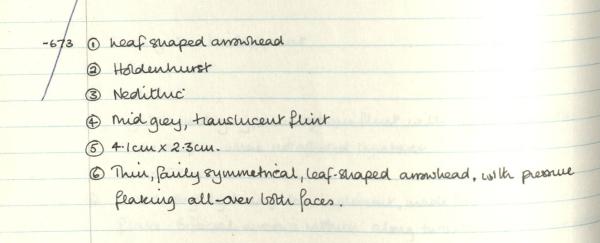 -673 ① Leaf shaped arrowhead
② Holdenhurst
③ Neolithic
④ Mid grey, translucent flint
⑤ 4.1cm x 2.3cm.
⑥ Thin, fairly symmetrical, leaf-shaped arrowhead, with pressure
flaking all-over both faces.